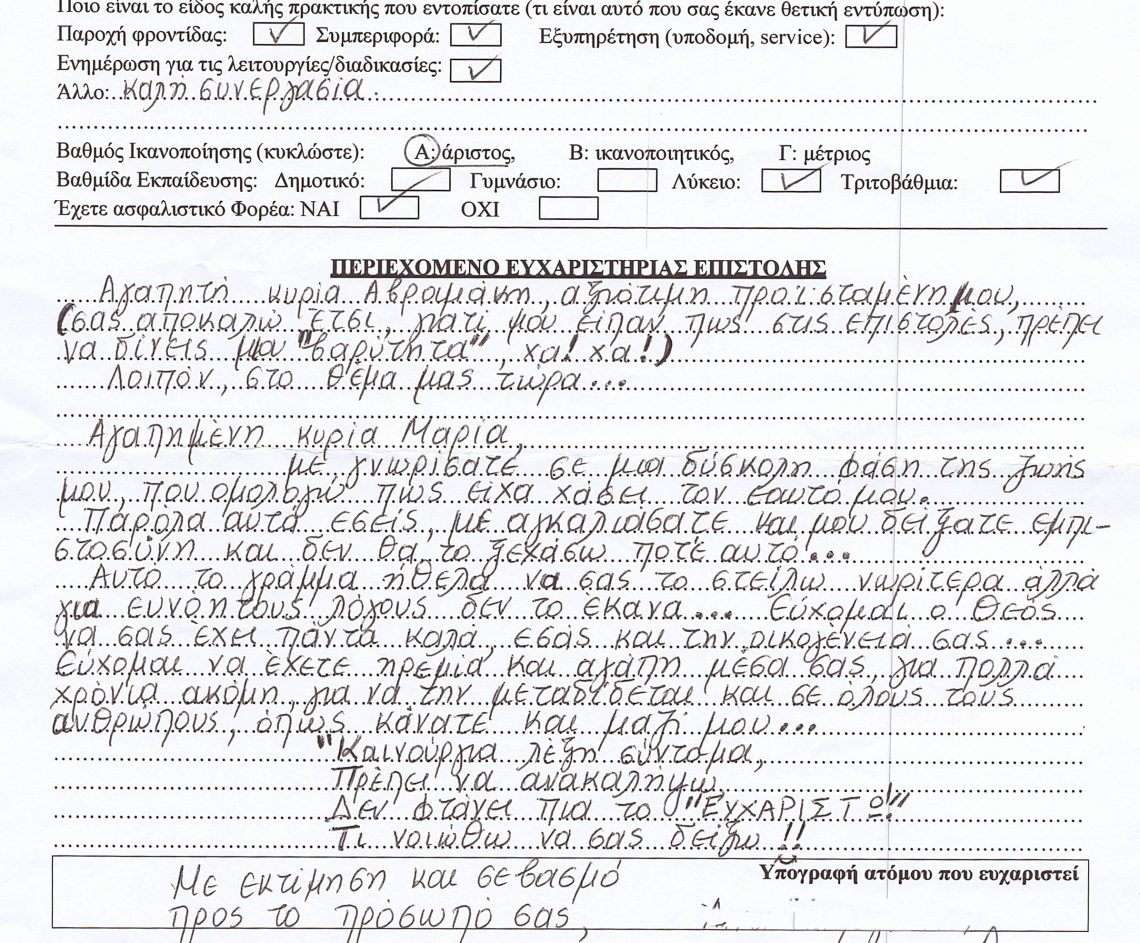 Ποιο είναι το είδος καλής πρακτικής που εντοπίσατε (τι είναι αυτό που σας έκανε θετική εντύπωση):
Παροχή φροντίδας: Συμπεριφορά: Εξυπηρέτηση (υποδομή, service):
Ενημέρωση για τις λειτουργίες/διαδικασίες:
Άλλο: καλή συνεργασία.
Βαθμός Ικανοποίησης (κυκλώστε): Α: άριστος, Β: ικανοποιητικός, Γ: μέτριος
Βαθμίδα Εκπαίδευσης: Δημοτικό: Γυμνάσιο: Λύκειο: Τριτοβάθμια:
Έχετε ασφαλιστικό Φορέα: ΝΑΙ ΟΧΙ
ΠΕΡΙΕΧΟΜΕΝΟ ΕΥΧΑΡΙΣΤΗΡΙΑΣ ΕΠΙΣΤΟΛΗΣ
Αγαπητή κυρία Αβραμάκη, αξιότιμη προϊσταμένη μου,
(σας αποκαλώ έτσι, γιατί μου είπαν πως στις επιστολές, πρέπει
να δίνεις μια "βαρύτητα", χα! χα!)
Λοιπόν, στο θέμα μας τώρα...
Αγαπημένη κυρία Μαρία,
με γνωρίσατε σε μια δύσκολη φάση της ζωής
μου, που ομολογώ πως είχα χάσει τον εαυτό μου.
Παρόλα αυτά εσείς, με αγκαλιάσατε και μου δείξατε εμπι-
στοσύνη και δεν θα το ξεχάσω ποτέ αυτό...
Αυτό το γράμμα ήθελα να σας το στείλω νωρίτερα αλλά
για ευνόητους λόγους δεν το έκανα... Εύχομαι ο Θεός
να σας έχει πάντα καλά, εσάς και την οικογένειά σας...
Εύχομαι να έχετε ηρεμία και αγάπη μέσα σας, για πολλά
χρόνια ακόμη, για να την μεταδίδεται και σε όλους τους
ανθρώπους, όπως κάνατε και μαζί μου...
"Καινούργια λέξη σύντομα,
Πρέπει να ανακαλήψω,
Δεν φτάνει πια το "ΕΥΧΑΡΙΣΤΩ!"
Τι νοιώθω να σας δείξω!!
Υπογραφή ατόμου που ευχαριστεί
Με εκτίμηση και σεβασμό
προς το πρόσωπό σας,